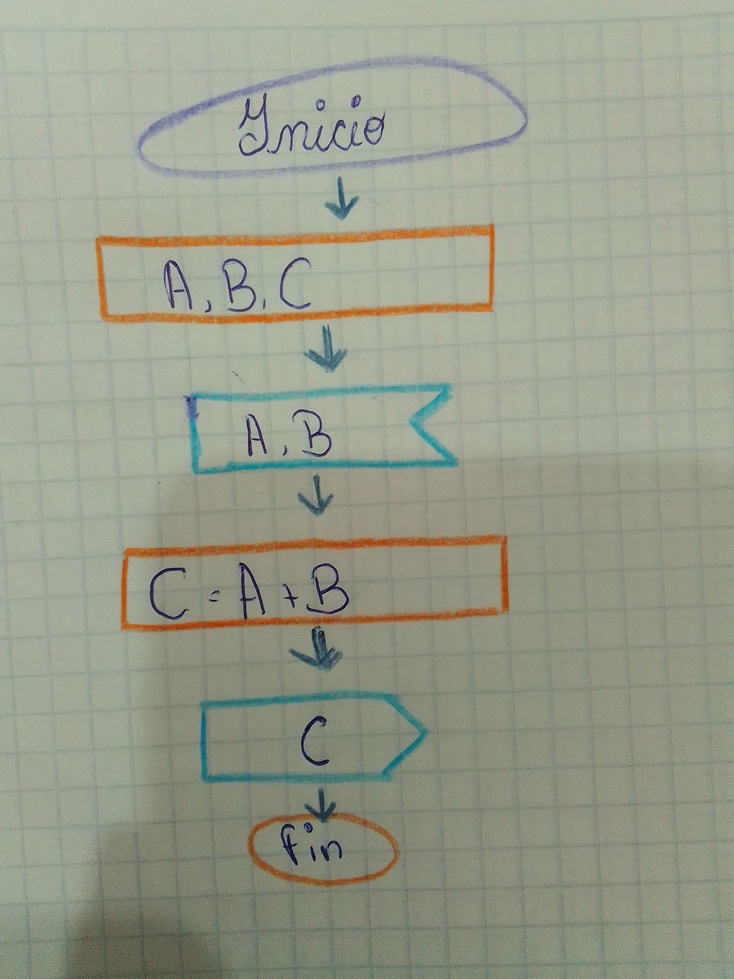 Inicio
A, B, C
A, B
C = A + B
C
fin